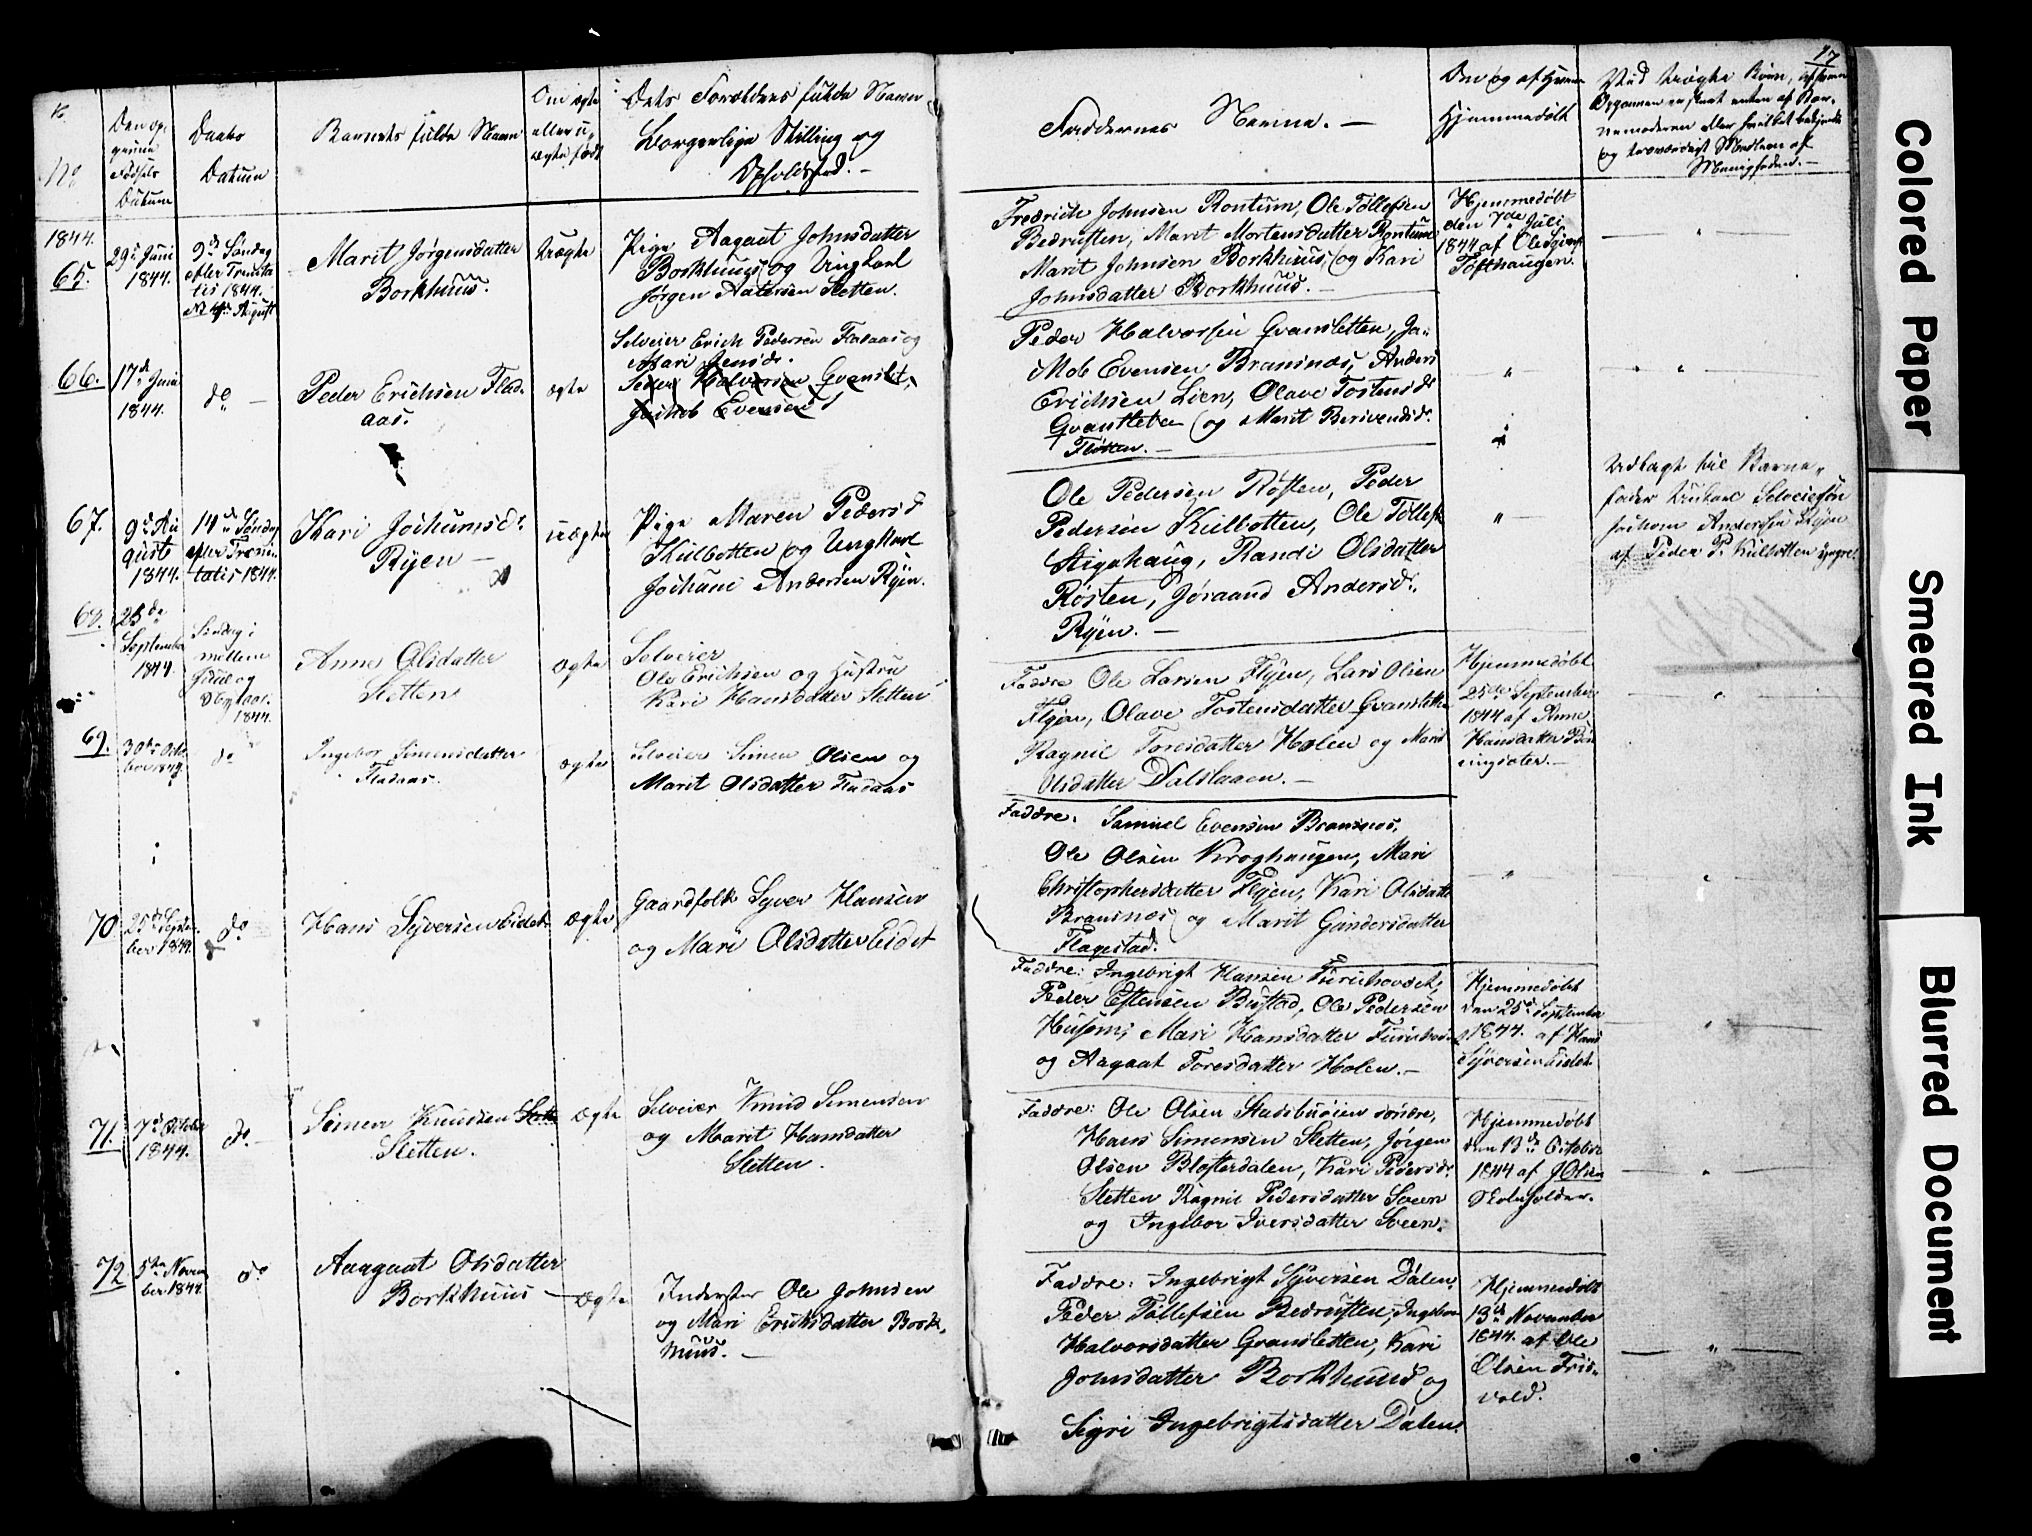 17
No
Den op-
givne
Fødsels
Datum
Daabs
Datum
Barnets fulde Navn
Om ægte
eller u-
ægte født
Dets Forældres fulde Navne
Borgerlige Stilling og
Opholdsted.-
Faddernes Navne.-
Om og af Hvem
Hjemmedøbt
Ved uægte Børn,
1844.
65.
29de Juni
1844.
9de Søndag
efter Trinita
tis 1844.
August
Marit Jørgensdatter
Borkhuus.
uægte
Pige Aagaat Johnsdatter
Borkhuus og Ungkarl
Jørgen Sletten.
Fredrich Johnsen Rontum, Ole Tollefsen
Marit Mortensdatter Rontum
Marit Johnsen Borkhuus, og Kari
Johnsdatter Borkhuus.-
Hjemmedøbt
den 7de Juli
1844 af Ole
Tofthaugen.
66.
17de Juni
1844.
do
Peder Erichsen Flad-
aas.
ægte
Selveier Erich Pedersen Fladaas og
Mari Jensd.
Peder Halvorsen
Jakob Evensen
Peder Halvorsen Gvansletten, Ja-
Kob Evensen Bransnes, Anders
Erichsen Lien, Olave Tostensd.
og Marit
67.
9de Au
gust
1844.
14de Søndag
efter Trini-
tatis 1844.
Kari Jochumsd.
Ryen -
uægte
Pige Maren Pedersd.
Kulbotten og Ungkarl
Jochum Andersen Ryen.
Ole Pedersen Røsten, Peder
Pedersen Kulbotten, Ole Tollefs.
Stigahaug, Randi Olsdatter
Røsten, Jøraand Andersd.
Ryen. -
Udlagt til Barne-
fader Ungkarl
Jochum Andersen Ryen
af Peder P. Kulbotten
68.
25de
September
1844.
Søndag i
mellem
Juul og
Nytaar.
1844.
Anne Olsdatter
Sletten
ægte
Selveier
Ole Erichsen og Hustru
Kari Hansdatter Sletten
Faddre Ole Larsen Flyen, Lars Olsen
Flyen, Olave Tostensdatter Gvansletten
Ragnil Toresdatter Holen og Marit
Olsdatter Dalslaaen. -
Hjemmedøbt
25de September
1844 af Anne
Hansdatter
69.
30te Octo
ber 1844
do
Ingebor Simensdatter
Fladaas.
ægte
Selveier Simen Olsen og
Marit Olsdatter Fladaas
Faddre: Samuel Evensen Bransnes,
Ole Olsen Kroghaugen, Mari
Christophersdatter Flyen, Kari Olsdatter
Bransnes og Marit Gundersdatter
Flagestad.
70
25de Septem-
ber 1844.
do
Hans Syversen Eidet
ægte
Gaardfolk Syver Hansen
og Mari Olsdatter Eidet
Faddre: Ingebrigt Hansen Furuhovdet,
Peder Estensen Bustad, Ole Pedersen
Husom, Mari Hansdatter
og Aagaat Toresdatter Holen.-
Hjemmedøbt
den 25de September
1844. af Hans
Syversen Eidet
71.
7de October
1844.
do. -
Simen Knudsen
Sletten.
ægte
Selveier Knud Simensen
og Marit Hansdatter
Sletten.
Faddre: Ole Olsen Stadsbuøien søndre,
Hans Simensen Sletten, Jørgen
Olsen Kari Pedersd.
Sletten Ragnil Pedersdatter Sveen
og Ingebor Iversdatter Sveen.
Hjemmedøbt
den 13de October
1844 af J Olsen
Skoleholder.
72
5te Novem
ber 1844
do
Aargaat Olsdatter
Borkhuus
ægte
Inderster Ole Johnsen
og Mari Eriksdatter Bork-
huus. -
Faddre: Ingebrigt Syversen Dalen,
Peder Tollefsen Ingebor
Halvorsdatter Gvansletten, Kari
Johnsdatter Borkhuus og
Sigri Ingebrigtsdatter Dalen.
Hjemmedøbt
13de November
1844. af Ole
Olsen Fris-
vold.
Colored Paper
Smeared Ink
Blurred Document